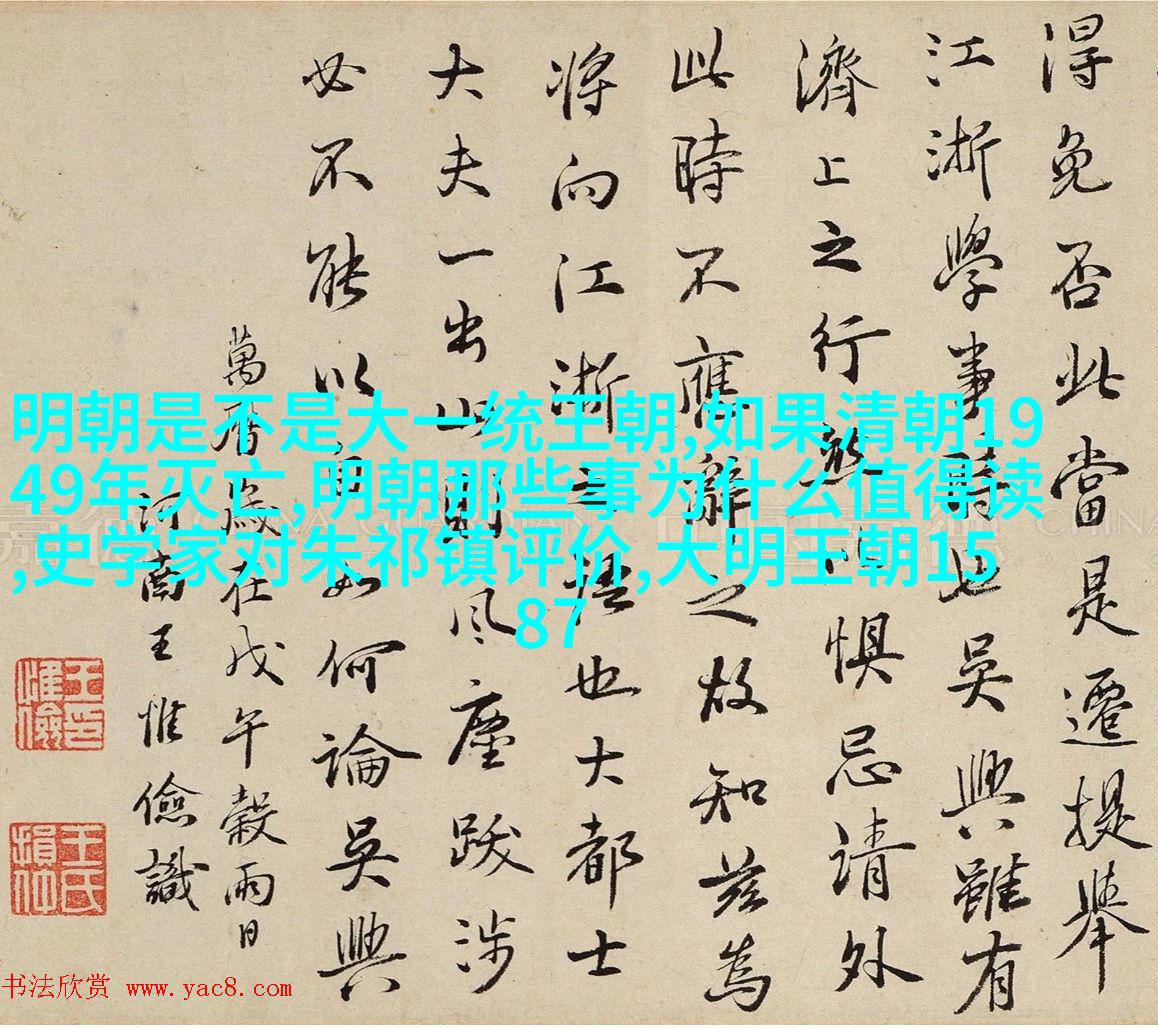 得免否此當是遷提舉
江浙學事時也吳興雖有
濟上之行懼忌請外
此時不應辭之故知茲為
將向江浙之語也大都士
大夫一出山則風塵跋涉
必不能以自如何論吳興
萬曆歲在戊午穀雨日
河南王惟儉識
明朝是不是大一统王朝,如果清朝19
49年灭亡,明朝那些事为什么值得读
,史学家对朱祁镇评价,大明王朝15
87
书法欣赏 www.yac8.com